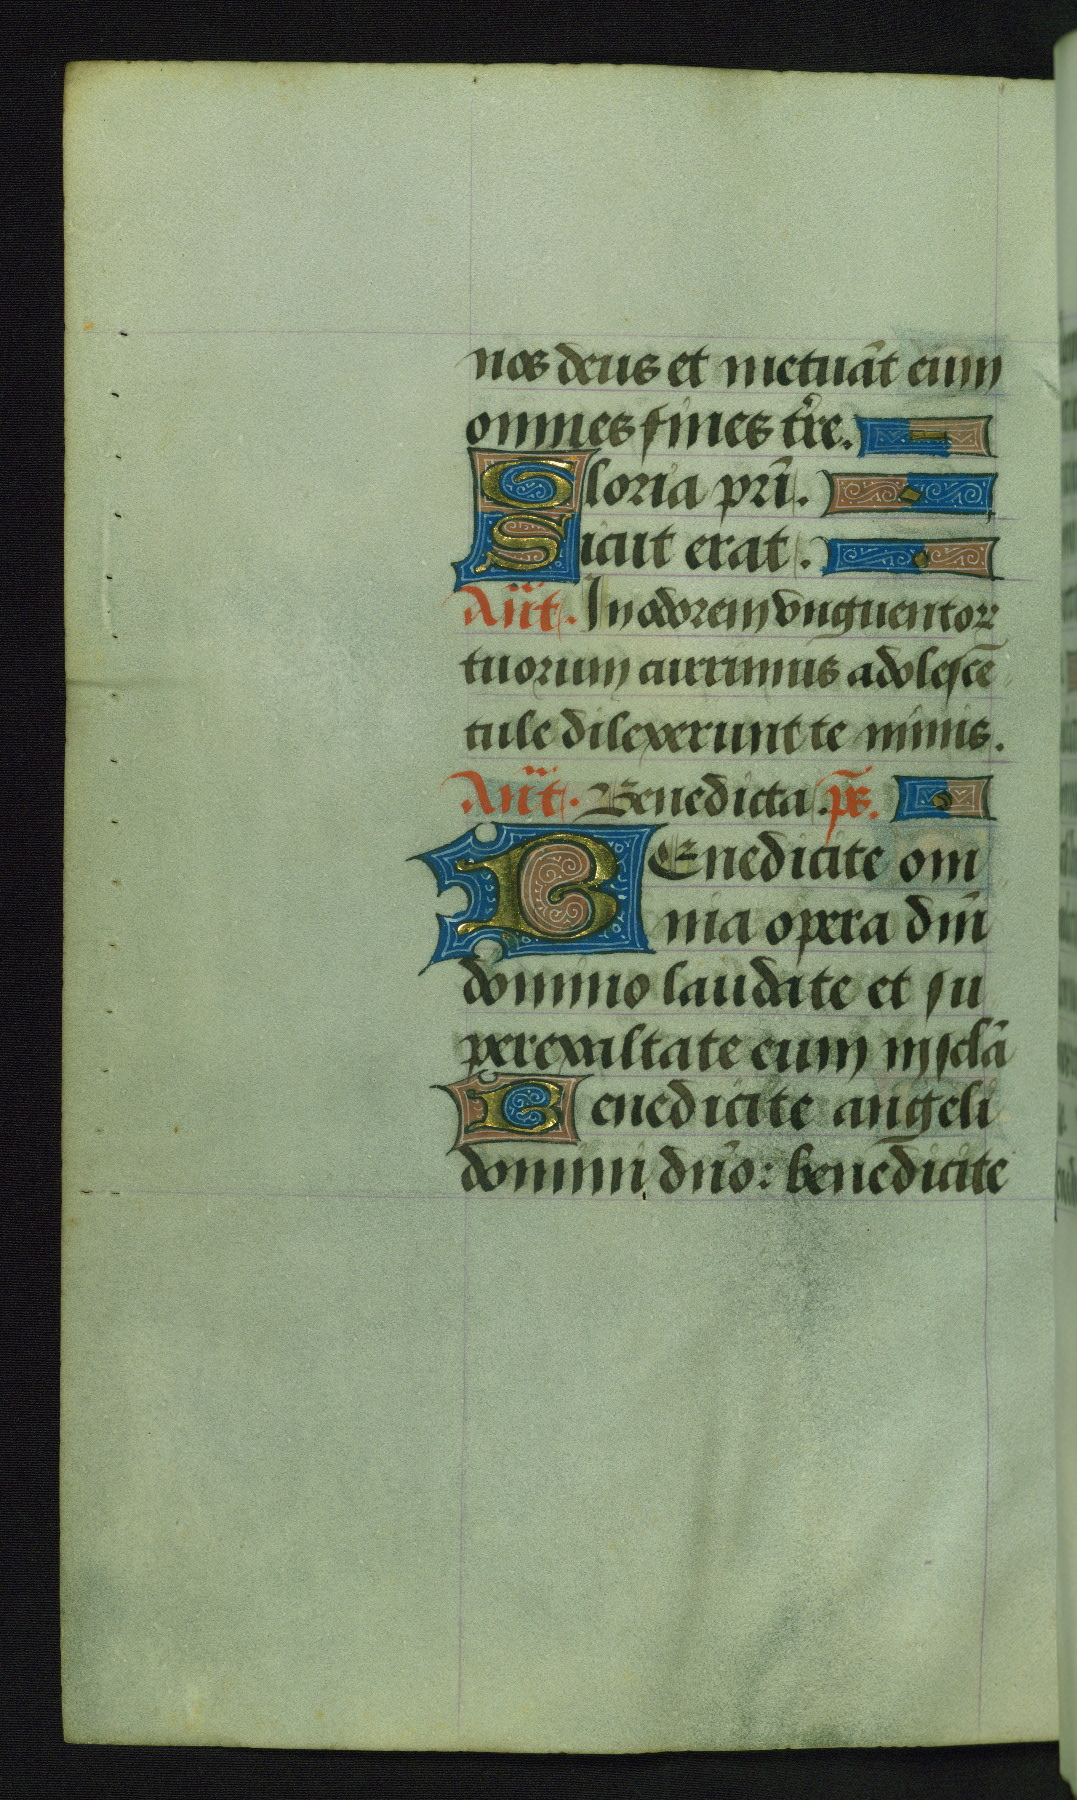 nos deus et metuāt eum
omnes fines tr̄e.
Gloria pr̄i.
Sicut erat.
Añt. In odorem vnguentoꝝ
tuorum currimus adolescē
tule dilexerunt te nimis.
Añt. Benedicta. p̄s.
BEnedicite om
nia opera dn̄i
domino laudate et su
perexaltate eum in sclā
Benedicite angeli
domini dn̄o: benedicite